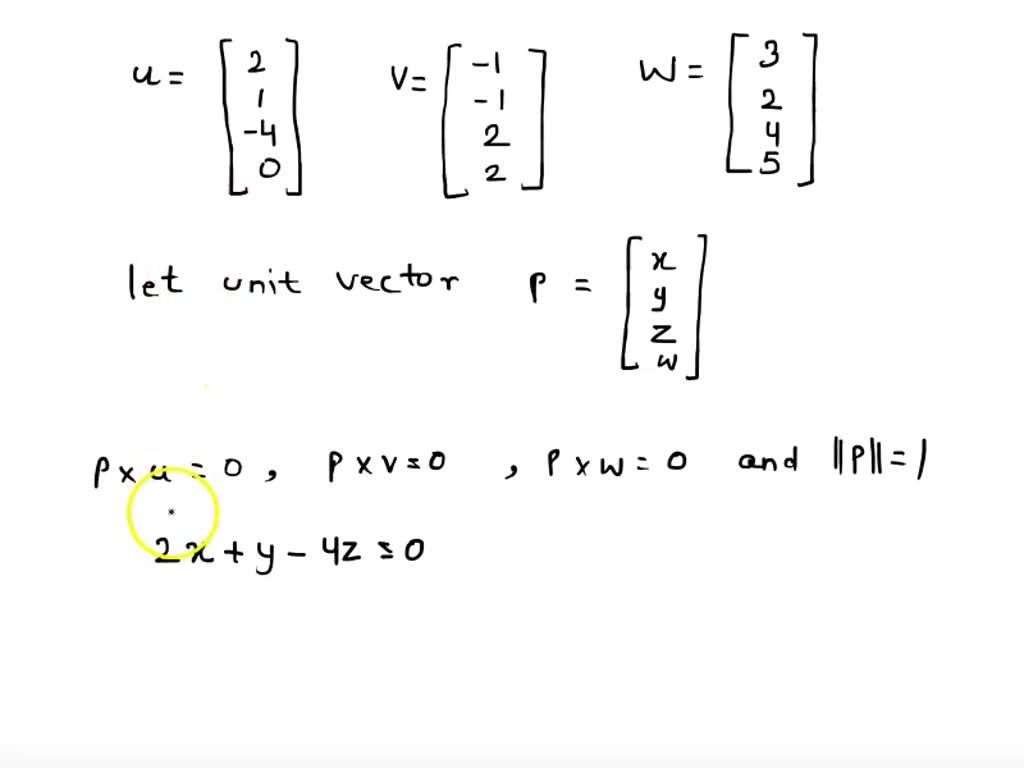 u = [2 1 -4 0] v = [-1 -1 2 2] W = [3 2 4 5]
let unit vector P = [x y z w]
P x u = 0 , P x v = 0 , P x w = 0 and ||P|| = 1
2x + y - 4z = 0